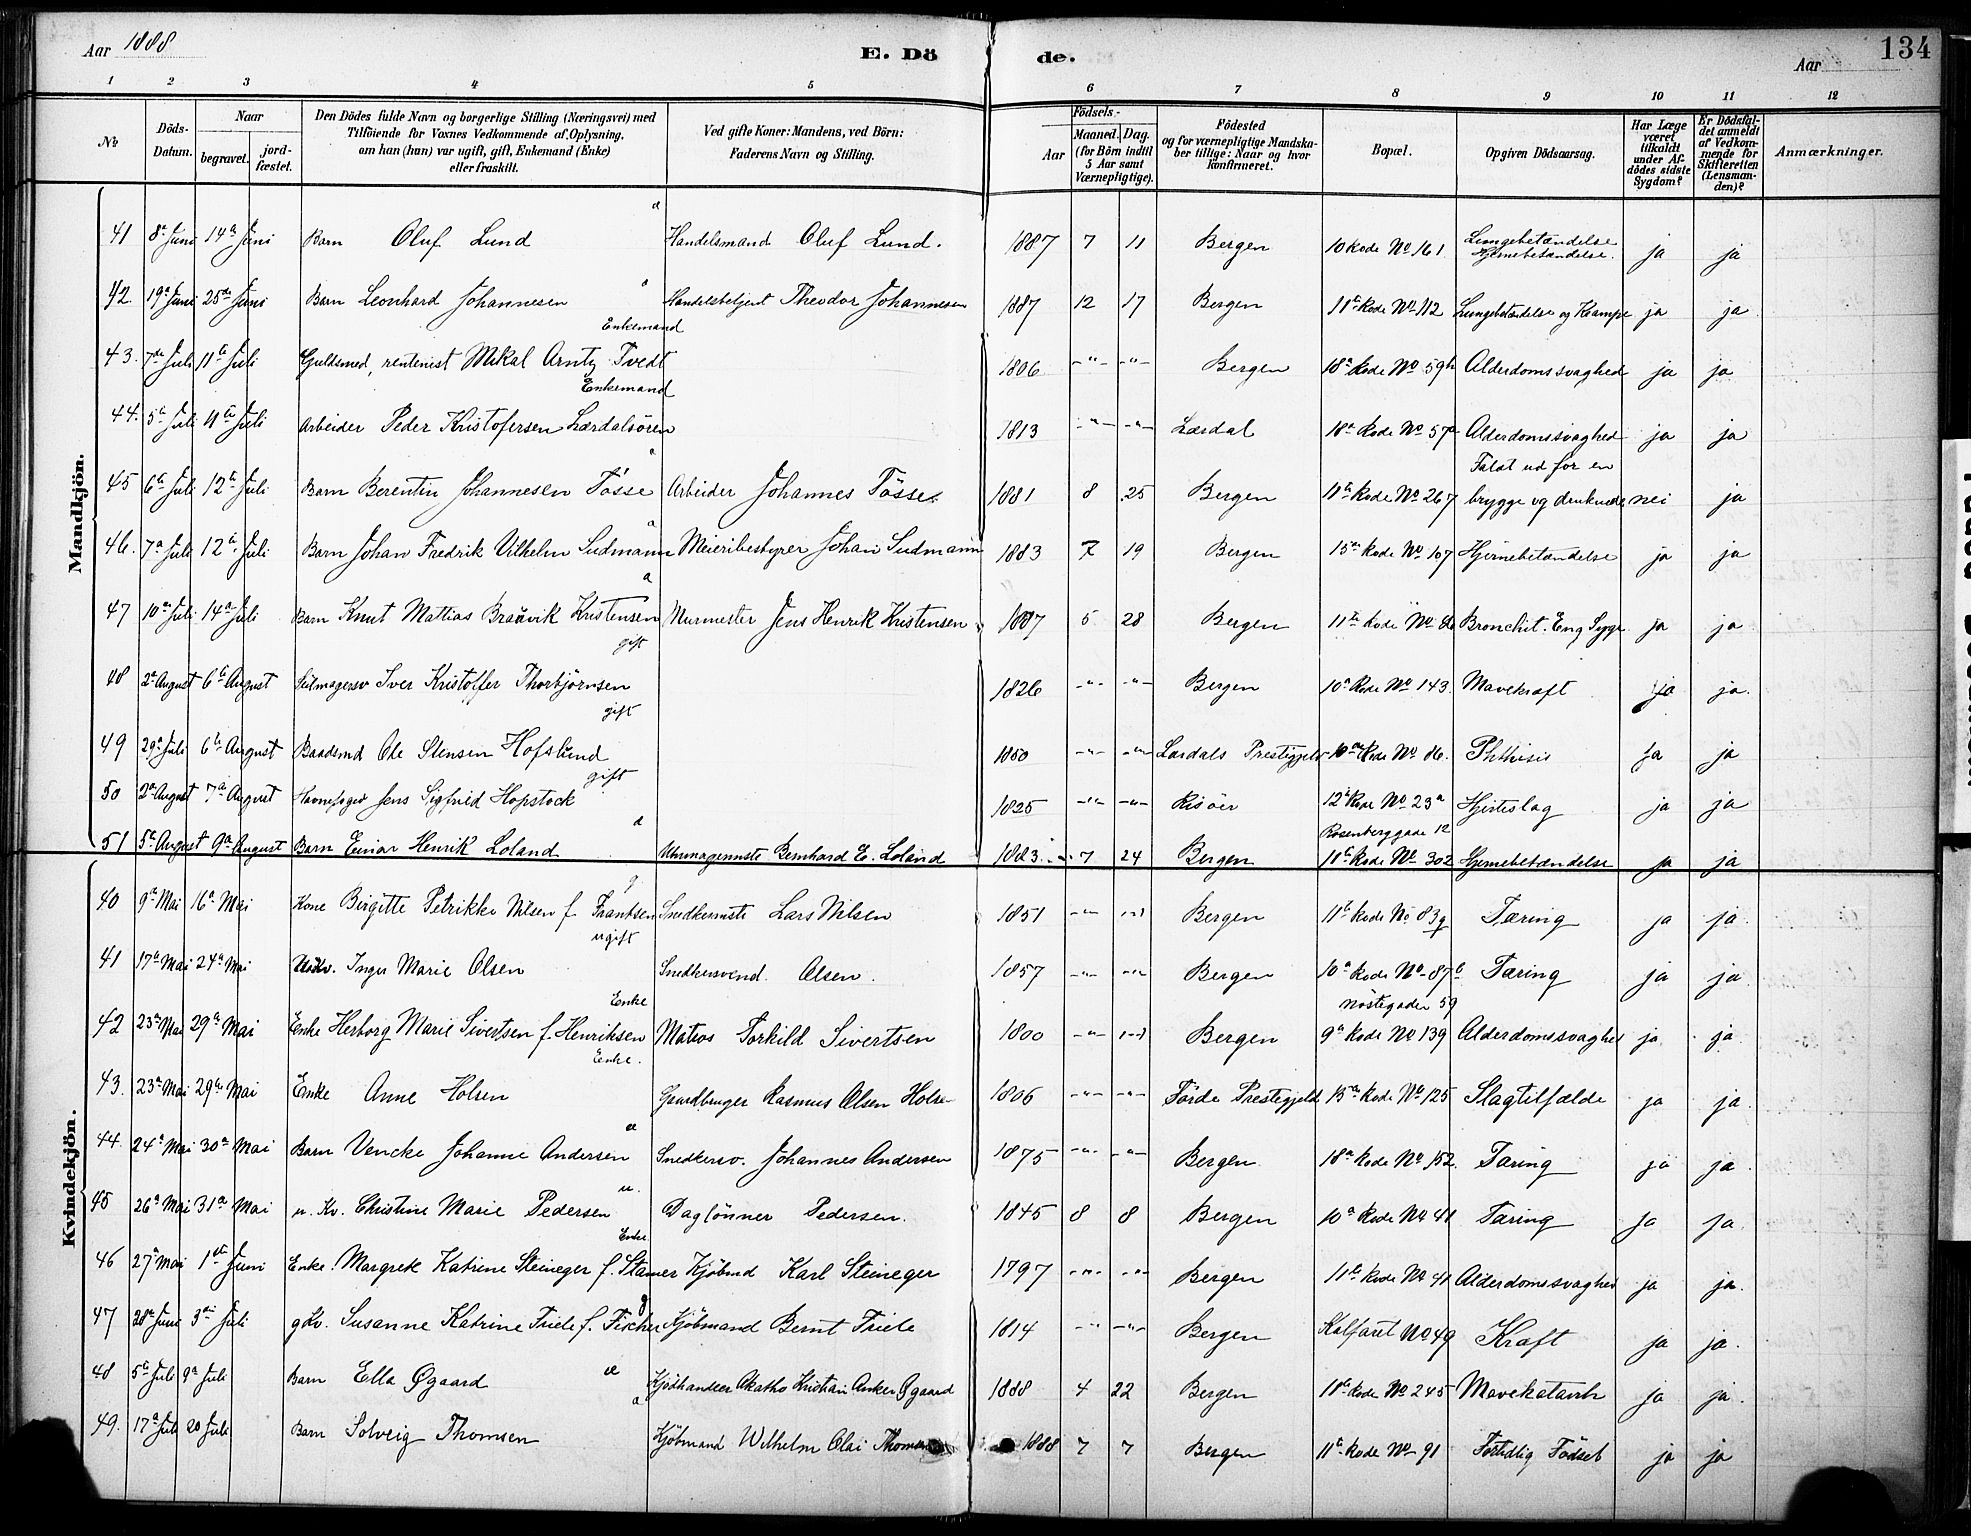 Aar 1888
E. Döde.
Aar
134
1 2 3 4 5 6 7 8 9 10 11 12
No
Döds-Datum.
Naar begravet. jordfæstet.
Den Dödes fulde Navn og borgerlige Stilling (Næringsvei) med Tilföiende for Voxnes Vedkommende af Oplysning, om han (hun) var ugift, gift, Enkemand (Enke) eller fraskilt.
Ved gifte Koner: Mandens, ved Börn: Faderens Navn og Stilling.
Födsels-
Aar Maaned. Dag. (for Börn indtil 5 Aar samt Værnepligtige).
Födested og for værnepligtige Mandskaber tillige: Naar og hvor konfirmeret.
Bopæl.
Opgiven Dödsaarsag.
Har Læge været tilkaldt under Afdödes sidste Sygdom?
Er Dödsfaldet anmeldt af Vedkommende for Skifteretten (Lensmanden)?
Anmærkninger.
Mandkjön.
41 8de Juni 14de Juni Barn Oluf Lund Handelsmand Oluf Lund. 1887 7 11 Bergen 10 Rode No 161 Lungebetændelse Hjernebetændelse. ja ja
42. 19de Juni 25de Juni Barn Leonhard Johannesen Handelsbetjent Theodor Johannesen 1887 12 17 Bergen 11te Rode No 112 Lungebetændelse og Krampe ja ja
Enkemand
43. 7de Juli 11te Juli Guldsmed, rentenist Mikal Arntz Tvedt 1806 -"- -"- Bergen 18de Rode No 59b Alderdomssvaghed ja ja
Enkemand
44. 5te Juli 11te Juli Arbeider Peder Kristofersen Lærdalsören 1813 -"- -"- Lærdal 18de Rode No 57a Alderdomssvaghed ja ja
45 6te Juli 12te Juli Barn Berentin Johannesen Tösse Arbeider Johannes Tösse. 1881 8 25 Bergen 11te Rode No 267 Faldt ud for en brygge og druknede nei ja
46. 7de Juli 12te Juli Barn Johan Fredrik Vilhelm Sudmann Meieribestyrer Johan Sudmann 1883 7 19 Bergen 15de Rode No 107 Hjernebetændelse ja ja
47 10de Juli 14de Juli Barn Knut Mattias Braavik Kristensen Murmester Jens Henrik Kristensen 1887 5 28 Bergen 11te Rode No 86 Bronchit. Eng Syge ja ja
gift
48 2de August 6te August Seilmagersv Iver Kristoffer Thorbjörnsen 1826 -"- -"- Bergen 10de Rode No 143. Mavekræft ja ja.
gift
49 29de Juli 6te August Baadsmd Ole Stensen Hofslund 1850 -"- -"- Lærdals Prestegjeld 10de Rode No 86. Phthisis ja ja
gift
50 2de August 7de August Havnefoged Jens Sigfried Hopstock 1825 -"- -"- Risöer 12te Rode No 23a Hjerteslag ja ja
Rosenberggade 12
51 5te August 9de August Barn Einar Henrik Loland Uhrmagermste Bernhard E. Loland 1883. 7 24 Bergen 11te Rode No 302 Hjernebetændelse ja ja
Kvindekjön.
40 9de Mai 16de Mai Kone Birgitte Petrikke Nilsen f. Frantsen Snedkermste Lars Nilsen 1851 -"- -"- Bergen 11te Rode No 83g Tæring ja ja.
ugift
41 17de Mai 24de Mai Inger Marie Olsen Snedkersvend. Olsen. 1857 -"- -"- Bergen 10de Rode No 87b Tæring ja ja
Enke Nöstegaden 59
42 23de Mai 29de Mai Enke Herborg Marie Sivertsen f. Henriksen Matros Torkild Sivertsen 1800 -"- -"- Bergen 9de Rode No 139 Alderdomssvaghed ja ja.
Enke.
43. 23de Mai 29de Mai Enke Anne Holsen Gaardbruger Rasmus Olsen Holsen 1806 -"- -"- Förde Prestegjeld 15de Rode No 125 Slagtilfælde ja ja.
44. 24de Mai 30de Mai Barn Vencke Johanne Andersen Snedkersv. Johannes Andersen 1875 -"- -"- Bergen. 18de Rode No 152. Tæring ja ja.
u.
45 26de Mai 31de Mai u. Kv. Christine Marie Pedersen Daglönner Pedersen. 1845 8 8 Bergen 10de Rode No 41 Tæring ja ja.
Enke
46 27de Mai 1ste Juni Enke. Margrete Katrine Steineger f. Stamer Kjöbmd Karl Steineger 1797 -"- -"- Bergen 11te Rode No 41 Alderdomssvaghed ja ja.
g
47 28de Juni 3de Juli g Kv. Susanne Katrine Friele f. Fischer Kjöbmand Bernt Friele 1814 -"- -"- Bergen Kalfaret No 49 Kræft ja ja.
48 5te Juli 9de Juli Barn Ella Øgaard Kjödhandler Akatho Kristian Anker Øgaard 1888 4 22 Bergen 11te Rode No 245 Mavekatarrh ja ja.
49. 17de Juli 20 Juli Barn Solveig Thomsen Kjöbmand Wilhelm Olai Thomsen 1888 7 7 Bergen 11te Rode No 91 Fortidlig Födsel ja ja